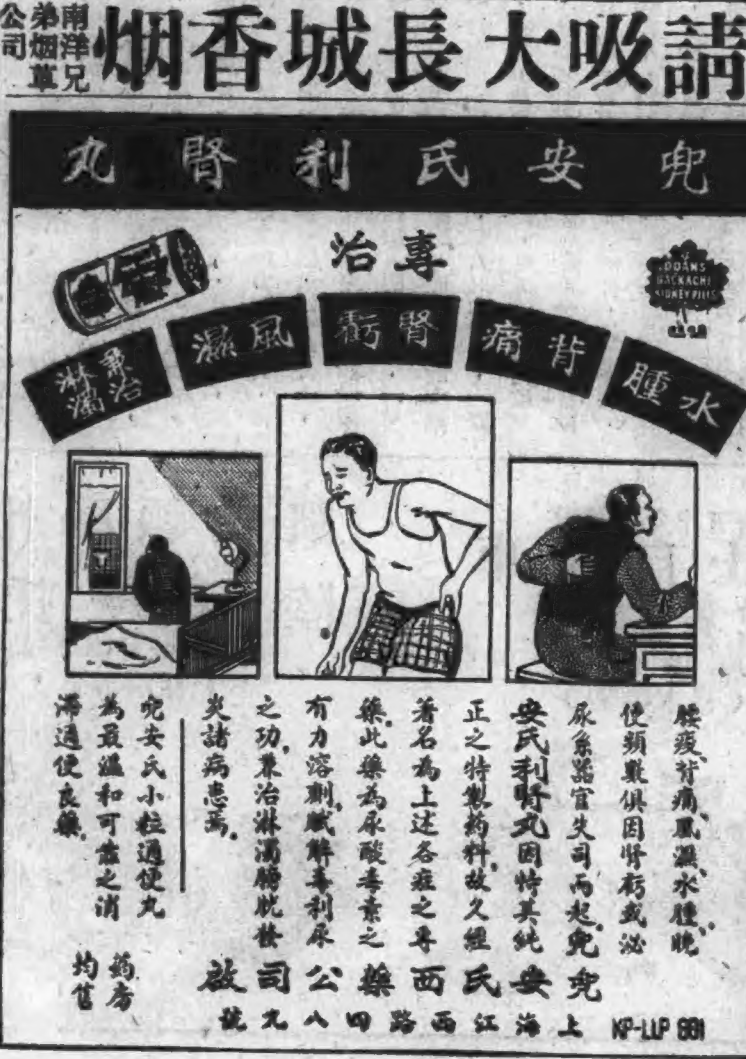 請吸大長城香烟
南洋兄
弟烟草
公司
兜安氏利腎丸
專治
DOANS
BACKACHE
KIDNEY PILLS
水腫
背痛
腎虧
風濕
兼治
淋濁
腰痠、背痛、風濕、水腫、晚
便頻數俱因腎虧或泌
尿系器官失司而起、兜
安氏利腎丸因特其純
正之特製药料、故久經
著名為上述各症之專
藥、此藥為尿酸毒素之
有力溶劑、賦解毒利尿
之功、兼治淋濁膀胱發
炎諸病患焉。
兜安氏小粒通便丸
為最溫和可靠之消
滯通便良藥、
兜安氏西藥公司啟
上海江西路四八九號
药房
均售
KP-LLP 881